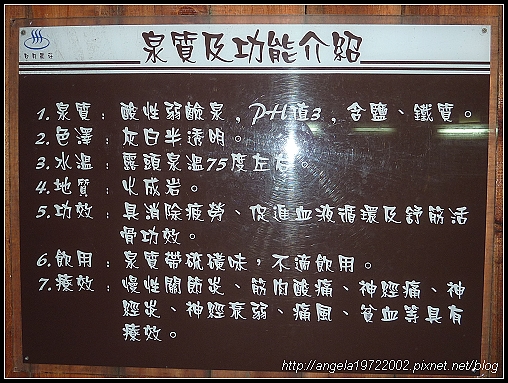 泉質及功能介紹
1.泉質：酸性弱鹼泉，PH值3，含鹽、鐵質。
2.色澤：灰白半透明。
3.水溫：露頭泉溫75度左右。
4.地質：火成岩。
5.功效：具消除疲勞、促進血液循環及舒筋活
骨功效。
6.飲用：泉質帶硫磺味，不適飲用。
7.療效：慢性關節炎、筋肉酸痛、神經痛、神
經炎、神經衰弱、痛風、貧血等具有
療效。
http://angela19722002.pixnet.net/blog